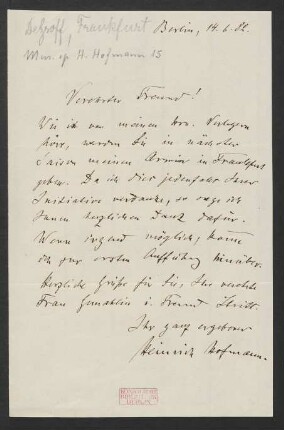 Dehoff, Frankfurt
Mus. ep. H. Hofmann 15
Berlin, 14.6.82.
Verehrter Freund!
Wie ich von meinen Hrn. Verlegern
höre, werden Sie in nächster
Saison meinen Armin in Frankfurt
geben. Da ich dies jedenfalls Ihrer
Initiative verdanke, so sage ich
Ihnen herzlichen Dank dafür.
Wenn irgend möglich, komme
ich zur ersten Aufführung hinüber.
Herzliche Grüße für Sie, Ihre verehrte
Frau Gemahlin u. Freund
Ihr ganz ergebener
Heinrich Hofmann.